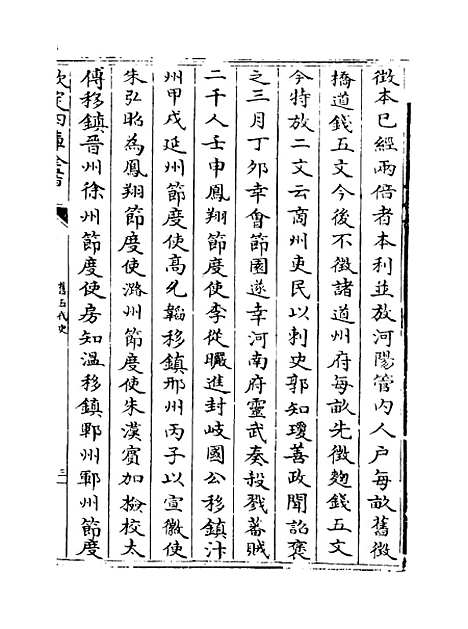 徴本已經兩倍者本利並放河陽管内人户毎畝舊徴
橋道錢五文今後不徴諸道州府每畝先徴麴錢五文
今特放二文云商州吏民以刺史郭知瓊善政聞詔褒
之三月丁夘幸會節園遂幸河南府靈武奏殺戮蕃賊
二千人壬申鳳翔節度使李從曮進封岐國公移鎮汴
州甲戌延州節度使髙允韜移鎮邢州丙子以宣徽使
朱弘昭為鳳翔節度使潞州節度使朱漢賔加檢校太
傅移鎮晉州徐州節度使房知温移鎮鄆州鄆州節度
欽定四庫全書
舊五代史
三